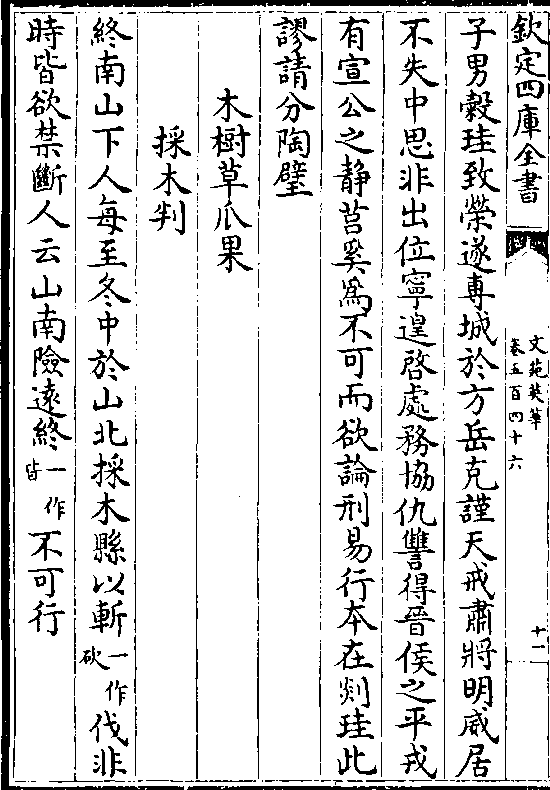 欽定四庫全書
文苑英華
卷五百四十六
十一
子男穀珪致榮遂專城於方岳克謹天戒肅將明威居
不失中思非出位寧遑啓處務協仇讐得晉侯之平戎
有宣公之静莒奚為不可而欲論刑易行本在剡珪此
謬請分陶璧
木樹草瓜果
採木判
終南山下人每至冬中於山北採木縣以斬一作砍伐非
時皆欲禁斷人云山南險遠終一作皆不可行